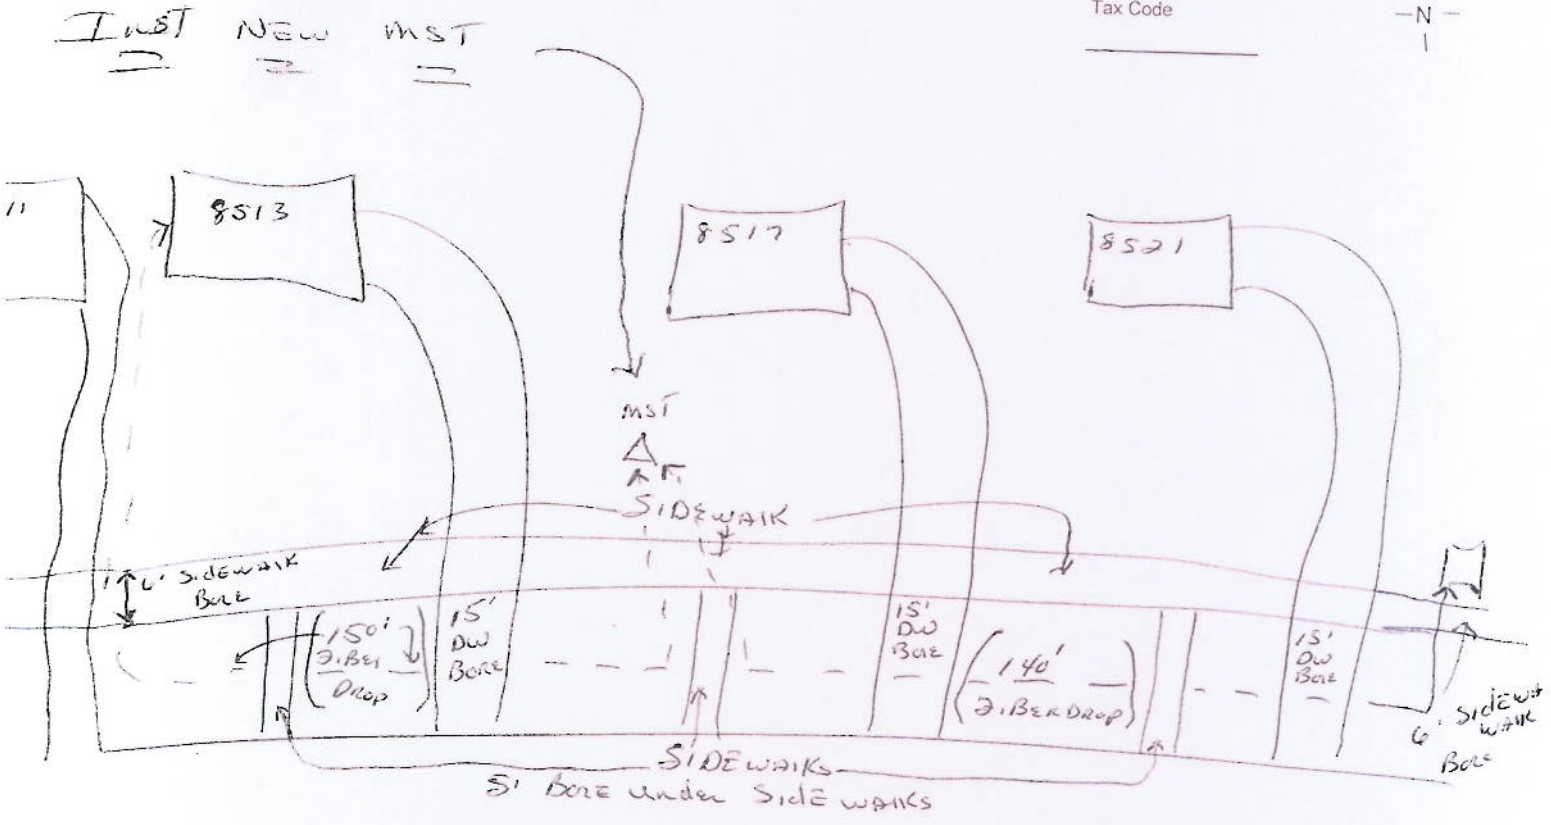 Tax Code
- N -
INST NEW MST
11
8513
8517
8521
MST
SIDEWALK
6' SIDEWALK
BORE
150'
FIBER
DROP
15'
DW
BORE
15'
DW
BORE
140'
FIBER DROP
15'
DW
BORE
6' SIDEWA
WALK
BORE
SIDEWALKS
5' BORE UNDER SIDE WALKS